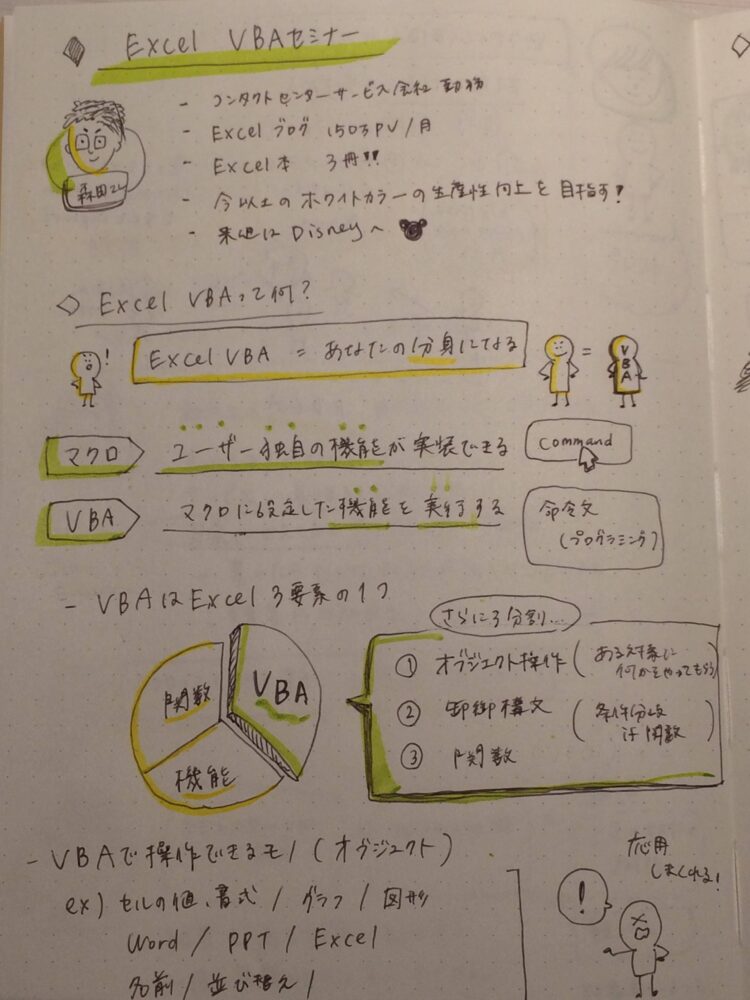 Excel VBAセミナー
- コンタクトセンターサービス会社 勤務
- Excel ブログ 150万PV/月
- Excel本 3冊!!
- 今以上の ホワイトカラーの 生産性向上を 目指す!
- 来週は Disneyへ
森田さん
Excel VBAって何?
!
Excel VBA = あなたの分身になる
=
VBA
マクロ
ユーザー独自の機能が 実装できる
Command
VBA
マクロに設定した機能を 実行する
命令文
(プログラミング)
- VBAはExcel 3要素の1つ
さらに3分割...
関数
VBA
機能
① オブジェクト操作 (ある対象に何かをやってもらう)
② 制御構文 (条件分岐 if 関数)
③ 関数
- VBAで 操作できるモノ (オブジェクト)
応用しまくれる!
!
ex) セルの値、書式 / グラフ / 図形
Word / PPT / Excel
名前 / 並び替え /